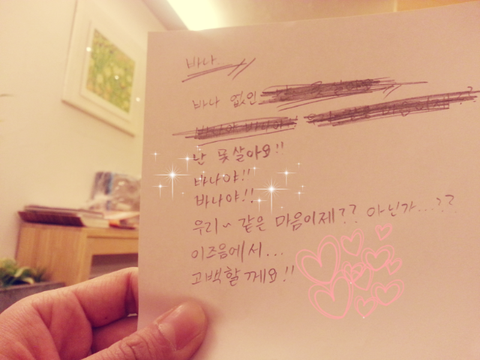 바나
바나 없인
난 못살아요!!
바나야!!
바나야!!
우리~ 같은 마음이제?? 아닌가...??
이즈음에서...
고백할께요!!